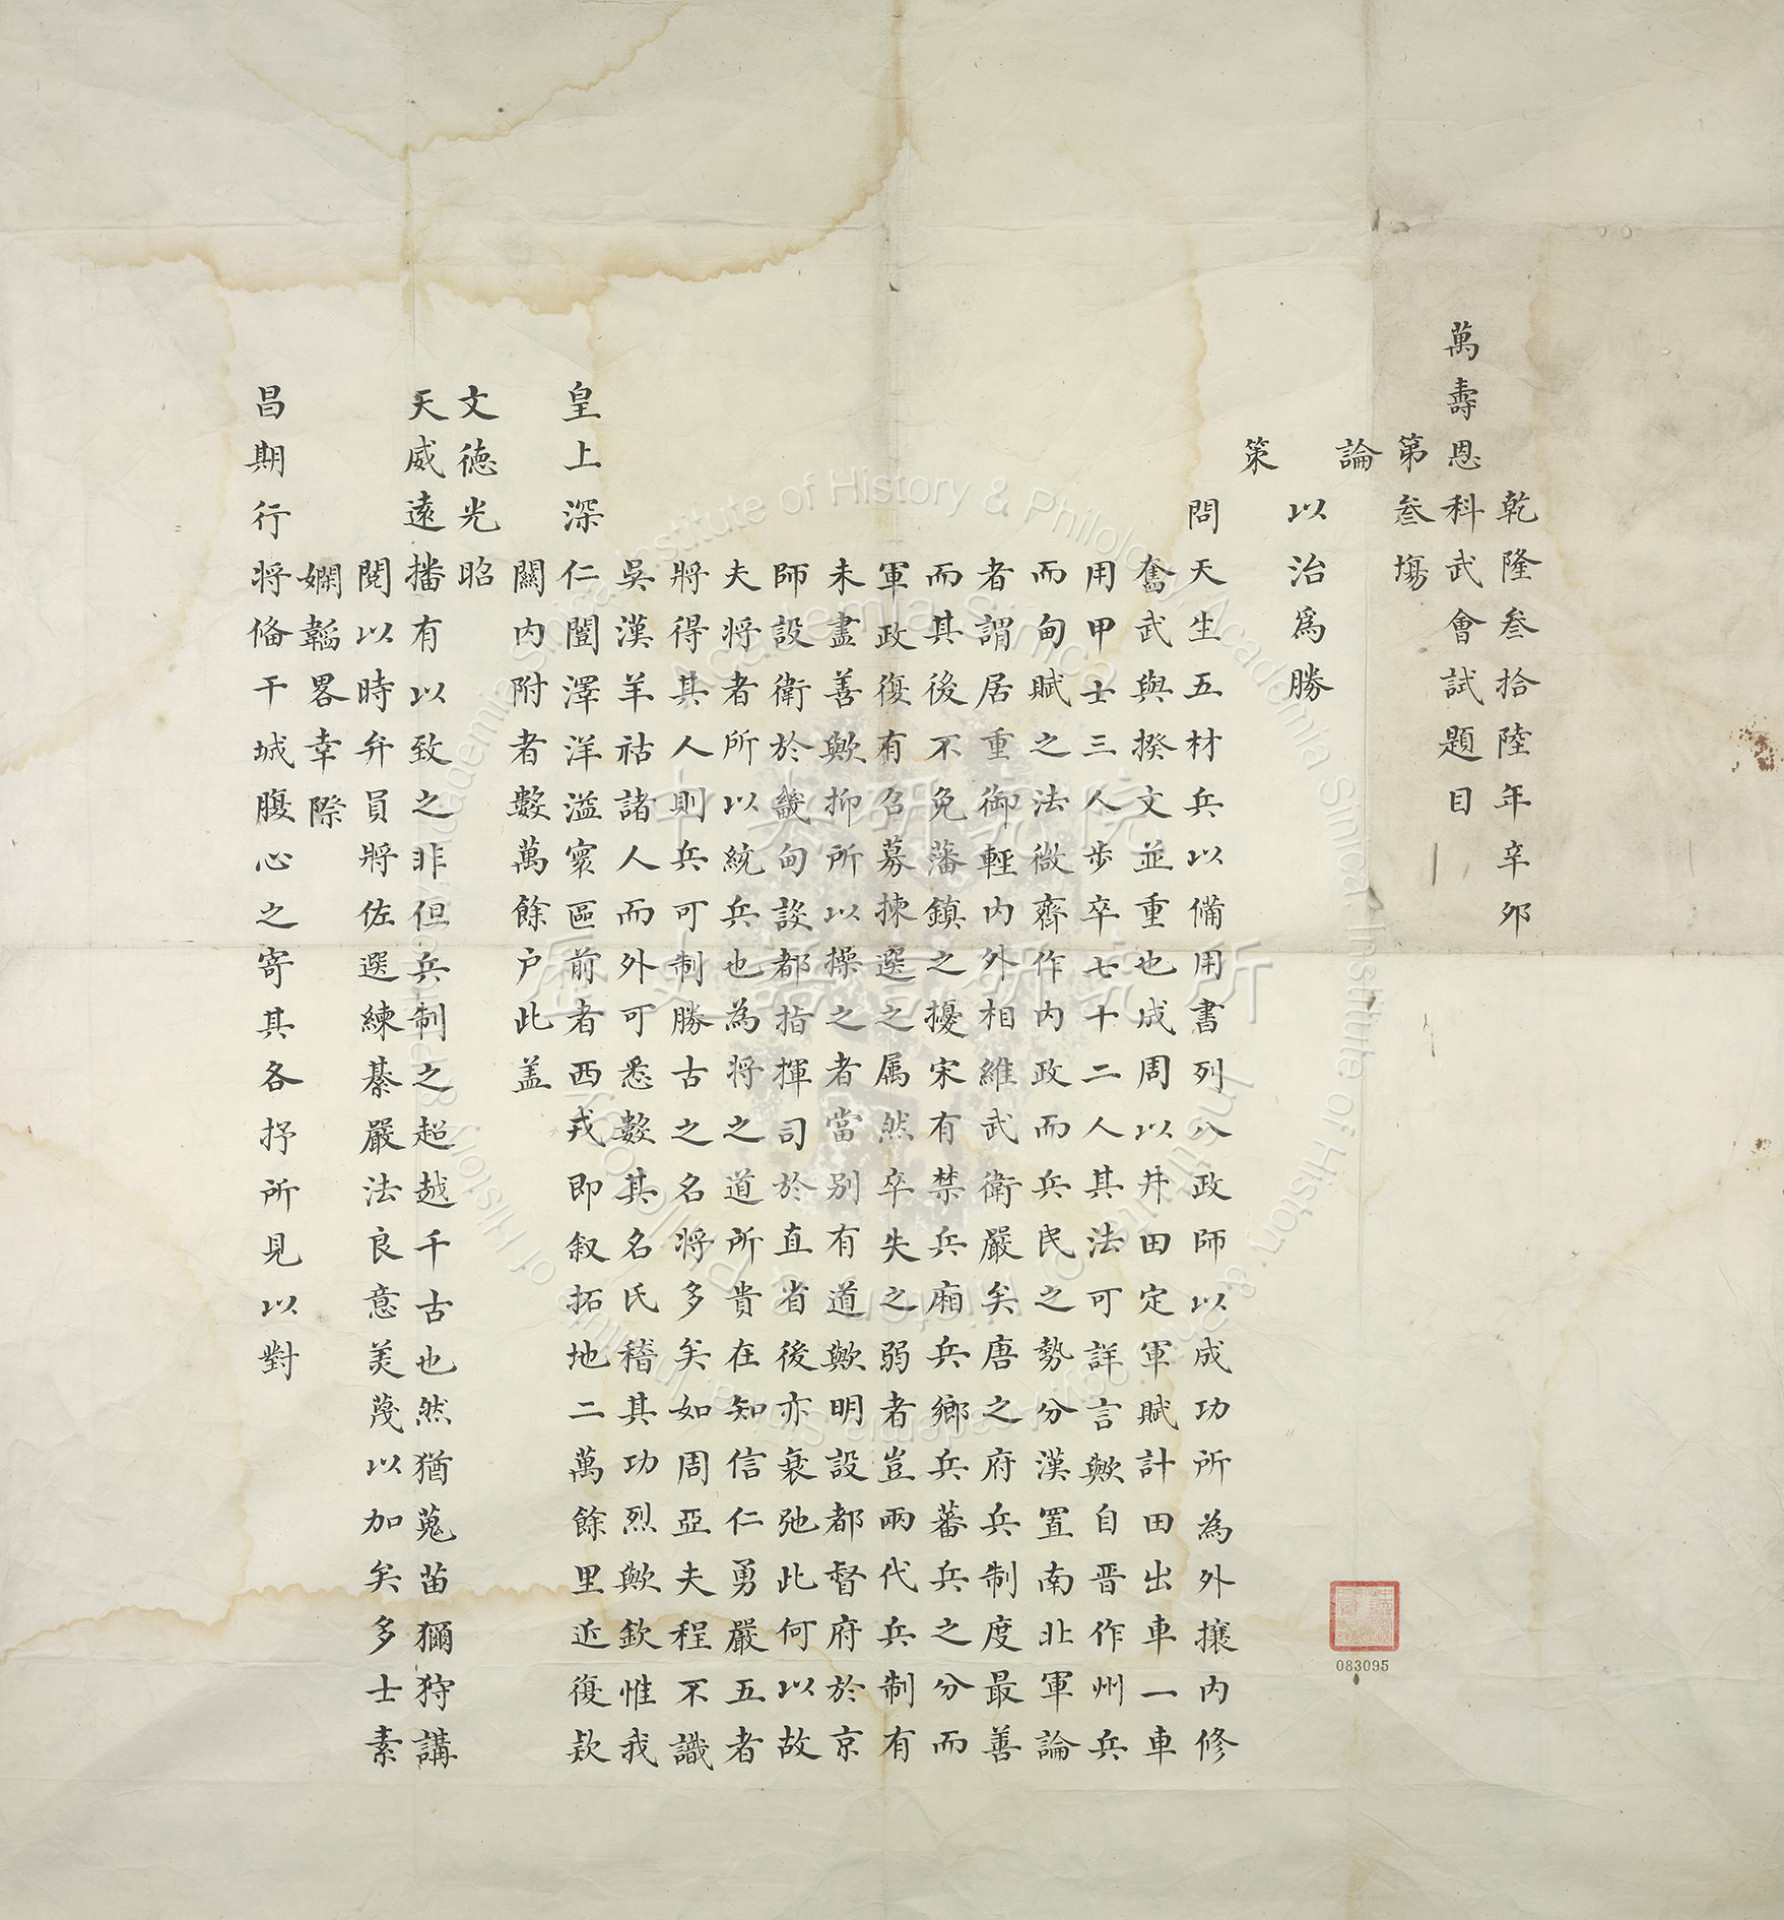 乾隆叁拾陸年辛卯
萬壽恩科武會試題目
第叁塲
論
以治爲勝
策
問天生五材兵以備用書列八政師以成功所為外攘内修
奮武與揆文並重也成周以井田定軍賦計田出車一車
用甲士三人步卒七十二人其法可詳言歟自晋作州兵
而甸賦之法微齊作内政而兵民之勢分漢置南北軍論
者謂居重御輕内外相維武衛嚴矣唐之府兵制度最善
而其後不免藩鎮之擾宋有禁兵廂兵鄉兵蕃兵之分而
軍政復有召募揀選之属然卒失之弱者豈兩代兵制有
未盡善歟抑所以操之者當别有道歟明設都督府於京
師設衛於畿甸設都指揮司於直省後亦衰弛此何以故
夫将者所以統兵也為将之道所貴在知信仁勇嚴五者
將得其人則兵可制勝古之名将多矣如周亞夫程不識
吳漢羊祜諸人而外可悉數其名氏稽其功烈歟欽惟我
皇上深仁闓澤洋溢寰區前者西戎即叙拓地二萬餘里近復欵
關内附者數萬餘户此盖
文德光昭
天威遠播有以致之非但兵制之超越千古也然猶蒐苗獮狩講
閱以時弁員將佐選練綦嚴法良意美蔑以加矣多士素
嫻韜畧幸際
昌期行将俻干城腹心之寄其各抒所見以對
083095
中央研究院
歷史語言研究所
Institute of History & Philology, Academia Sinica